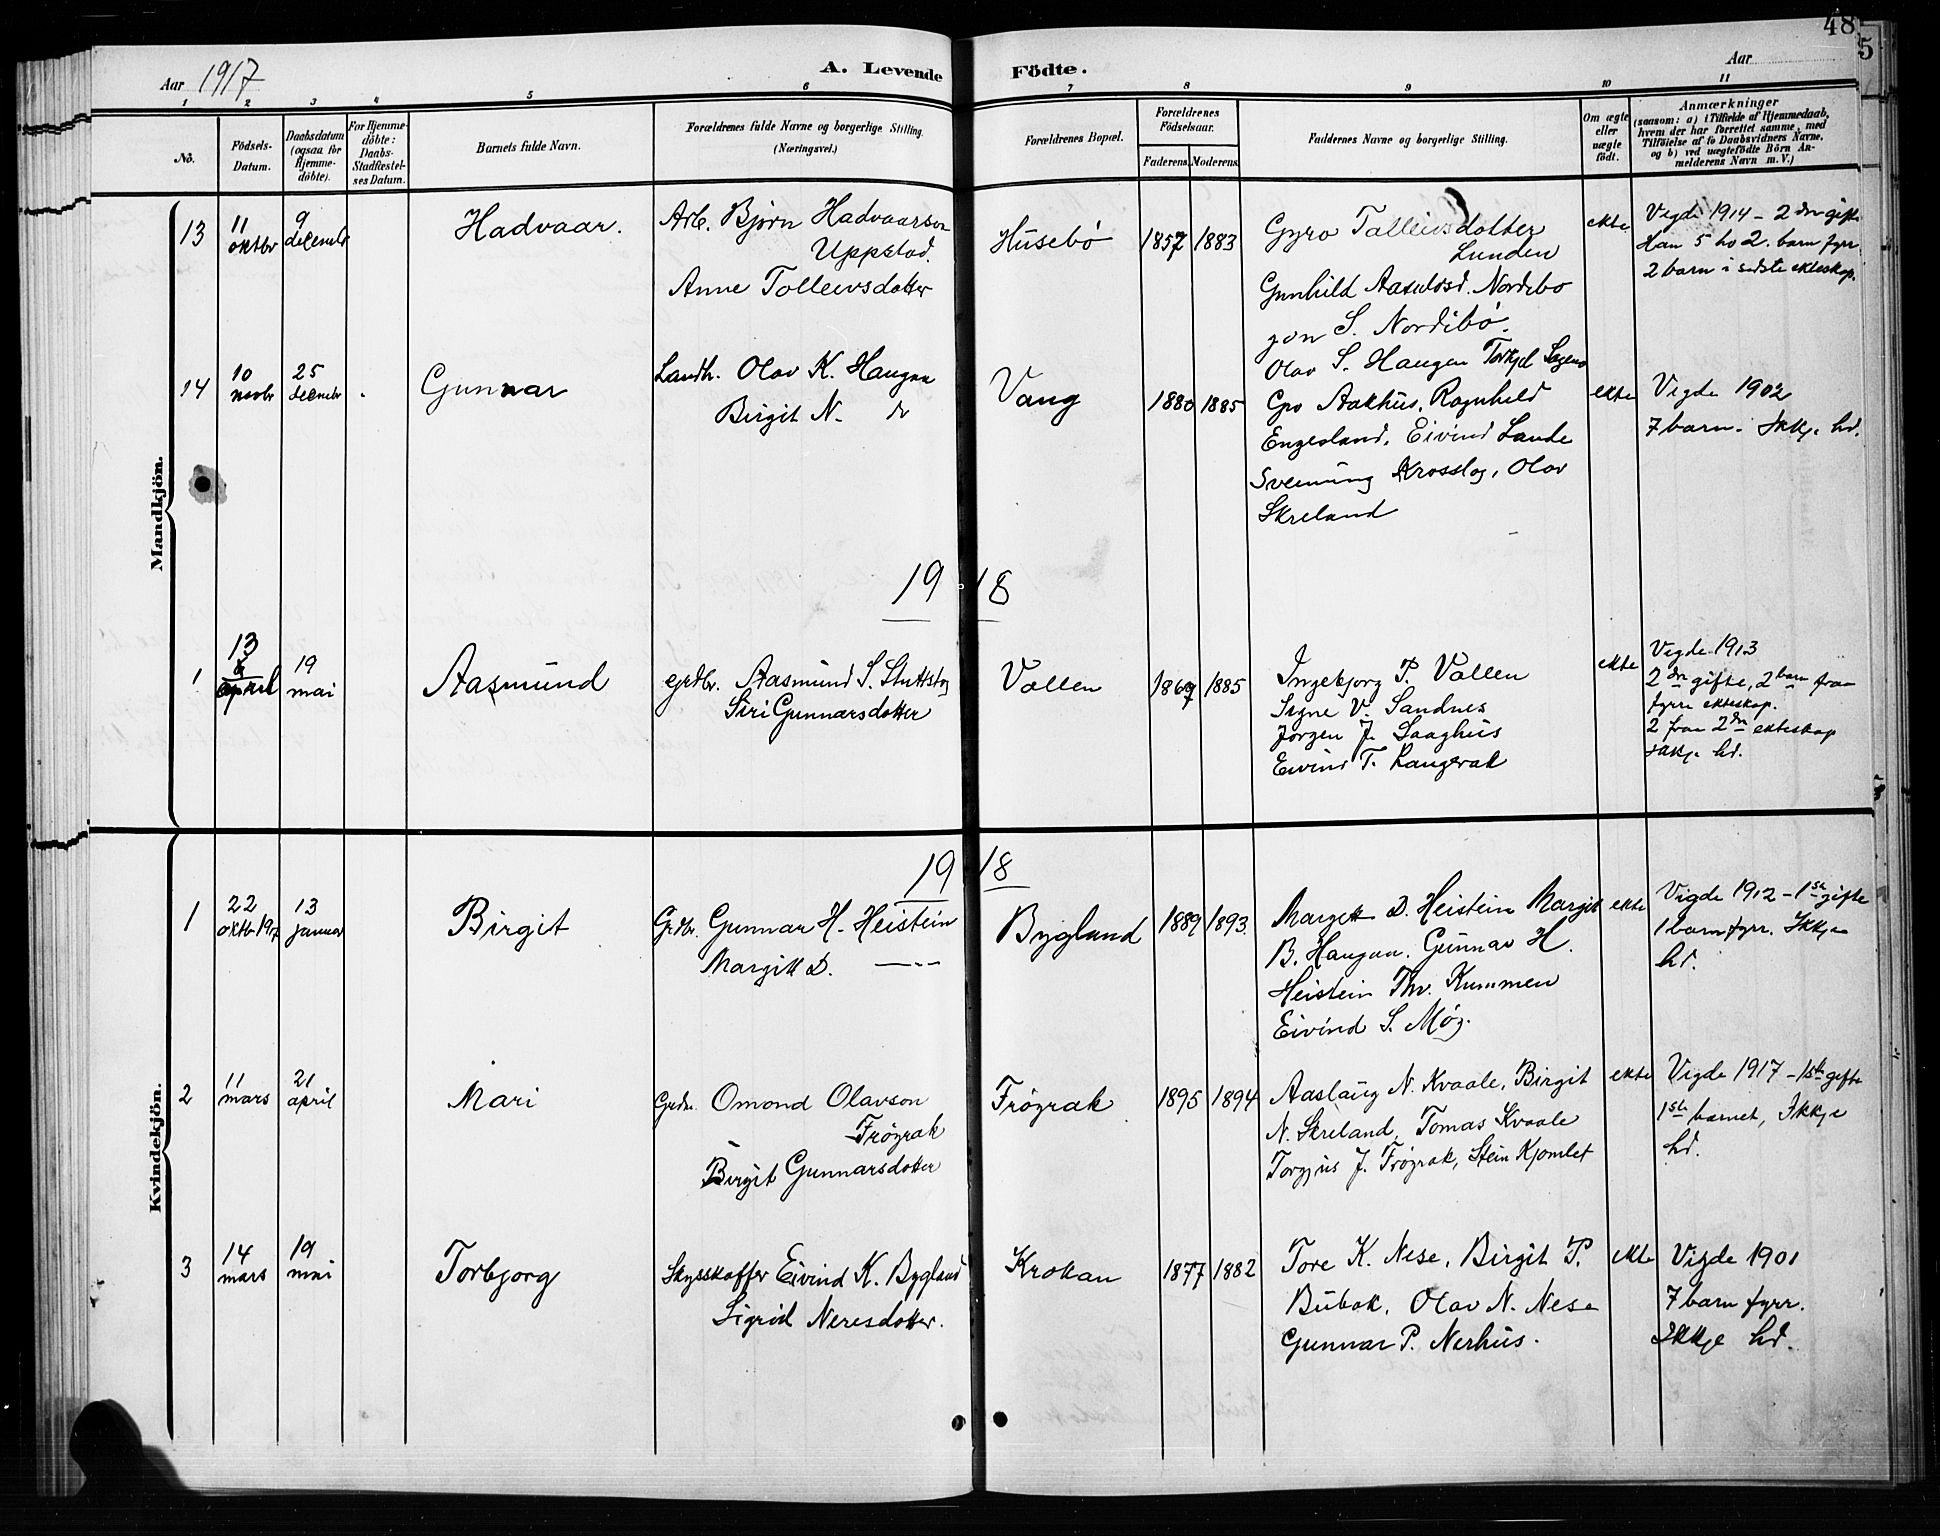 48
5
Aar 1917
A. Levende Födte.
Aar
1 2 3 4 5 6 7 8 9 10 11
Nò.
Födsels-
Datum.
Daabsdatum
(ogsaa for
Hjemme-
döbte).
For Hjemme-
döbte:
Daabs-
Stadfæstel-
ses Datum.
Barnets fulde Navn.
Forældrenes fulde Navne og borgerlige Stilling.
(Næringsvei.)
Forældrenes Bopæl.
Forældrenes
Födselsaar.
Faderens.
Moderens.
Faddernes Navne og borgerlige Stilling.
Om ægte
eller
uægte
født.
Anmærkninger
(saasom: a) i Tilfælde af Hjemmedaab,
hvem der har forrettet samme, med
Tilföielse af to Daabsvidners Navne,
og b) ved uægtefödte Börn An-
melderens Navn m. V.)
Mandkjön.
13
11
oktbr
9
decembr
Hadvaar.
Arb. Bjørn Hadvaarson
Uppstad.
Anne Tolleivsdotter
Húsebö
1857
1883
Gyro Talleivsdotter
Lunden
Gunhild Aasulvsd. Nordibo
Jon S. Nordibø.
Olav S. Haugen
ekte
Vigde 1914 - 2 dre gifte
Han 5 ho 2. barn fyrr
2 barn i sidste ekteskap.
14
10
novbr
25
decembr
Gunnar
Landh. Olav K. Haugen
Birgit N. do
Vang
1880
1885
Torkjel
Gro Aakhús, Ragnhild
Engesland, Eivind Lande
Sveinúng Krosslog, Olav
Skreland
ekte
Vigde 1902
7 barn. Ikkje hd.
1918
1
13
april
19
mai
Aasmúnd
grdbr. Aasmúnd S.
Siri Gunnarsdotter
Vallen
1885
Ingebjorg P. Vallen
Signe V. Sandnes
Jørgen J. Saaghús
Eivind T. Langerak
ekte
Vigde 1913
2 dre gifte, 2 barn fraa
fyrre ekteskap.
2 fraa 2 dre ekteskap
Ikkje hd.
Kvindekjön.
1918
1
22
oktbr 1917
13
januar
Birgit
Grdbr. Gunnar H. Heistein
Margitt D. —"—
Bygland
1889
1893.
Margitt D. Heistein Margit
B. Haugen. Gúnnar H.
Heistein Thv. Kummen
Eivind S. Møg.
ekte
Vigde 1912 - 1ste gifte
1 barn fyrr. Ikkje
hd.
2
11
mars
21
april
Mari
Grdbr. Omond Olavson
Frøgrak
Birgit Gunnarsdotter
Frögrak
1895
1894
Aaslaúg N. Kvaale, Birgit
N. Skreland, Tomas Kvaale
Torgjus J. Frøgrak, Stein Kjomlet
ekte
Vigde 1917 - 1ste gifte
1ste barnet, Ikkje
hd.
3
14
mars
19
mai
Torbjorg
Skysskaffer Eivind K. Bygland
Sigrid Neresdotter.
Krokan
1877
1882
Tore K. Nese, Birgit P.
Búbak, Olav N. Nese
Gunnar P. Nerhús.
ekte
Vigde 1901
7 barn fyrr.
Ikkje hd.